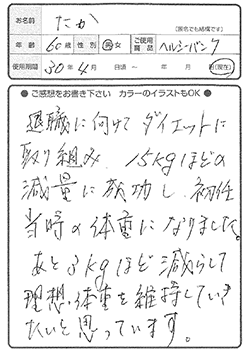 お名前 たか (匿名でも結構です)
年齢 60歳 性別 男・女 ご使用商品 ヘルシーバンク
使用期間 30年4月 日頃 ~ 年 月 日(現在)
● ご感想をお書き下さい カラーのイラストもOK ●
退職に向けてダイエットに
取り組み、15kgほどの
減量に成功し、初任
当時の体重になりました。
あと3kgほど減らして
理想体重を維持していき
たいと思っています。